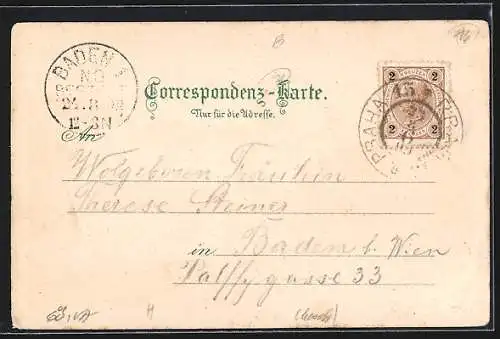 BADEN 1
NÖ
24.8
12-3N
Correspondenz-Karte.
Nur für die Adresse.
2 KREUZER 2
2 2
PRAHA 15 PRAG
An
Wolgeboren Fräulein
Therese Steiner
in Baden b. Wien
Palffygasse 33